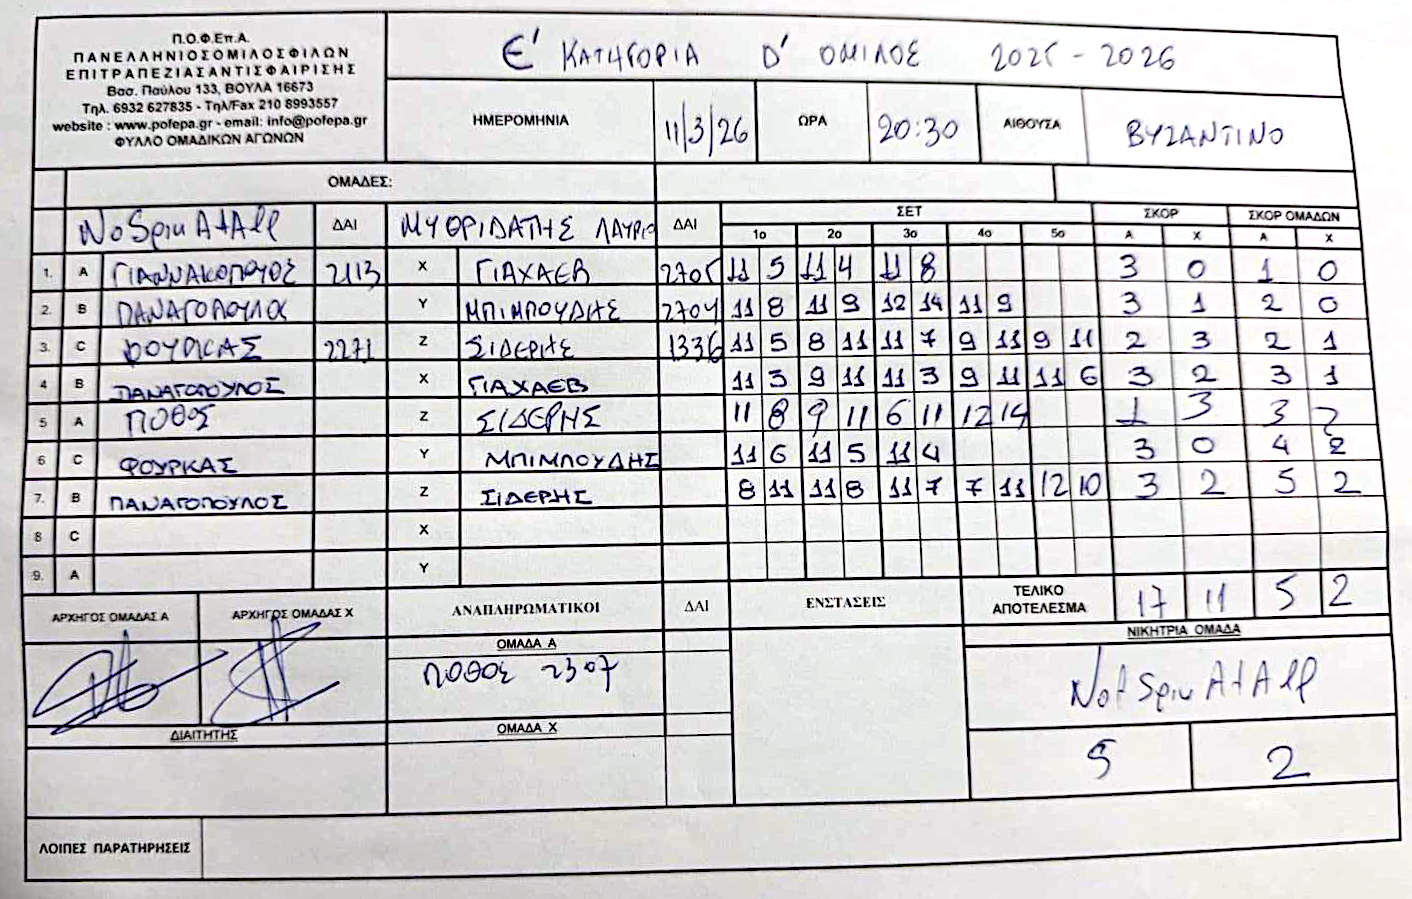 Π.Ο.Φ.Επ.Α.
ΠΑΝΕΛΛΗΝΙΟΣ ΟΜΙΛΟΣ ΦΙΛΩΝ
ΕΠΙΤΡΑΠΕΖΙΑΣ ΑΝΤΙΣΦΑΙΡΙΣΗΣ
Βασ. Παύλου 133, ΒΟΥΛΑ 16673
Τηλ. 6932 627835 - Τηλ/Fax 210 8993557
website : www.pofepa.gr - email: info@pofepa.gr
ΦΥΛΛΟ ΟΜΑΔΙΚΩΝ ΑΓΩΝΩΝ
Ε' ΚΑΤΗΓΟΡΙΑ Δ' ΟΜΙΛΟΣ 2025 - 2026
ΗΜΕΡΟΜΗΝΙΑ 11/3/26 ΩΡΑ 20:30 ΑΙΘΟΥΣΑ ΒΥΖΑΝΤΙΝΟ
ΟΜΑΔΕΣ:
NoSpin AtAll ΔΑΙ ΜΥΘΡΙΔΑΤΗΣ ΛΑΥΡΙΟ ΔΑΙ ΣΕΤ ΣΚΟΡ ΣΚΟΡ ΟΜΑΔΩΝ
1ο 2ο 3ο 4ο 5ο Α Χ Α Χ
1. A ΓΙΑΝΝΑΚΟΠΟΥΛΟΣ 2113 X ΓΙΑΧΑΕΒ 2705 11 5 11 4 11 8 3 0 1 0
2. B ΠΑΝΑΓΟΠΟΥΛΟΣ Y ΜΠΙΜΠΟΥΔΗΣ 2704 11 8 11 9 12 14 11 9 3 1 2 0
3. C ΦΟΥΡΚΑΣ 2271 Z ΣΙΔΕΡΗΣ 1336 11 5 8 11 11 7 9 11 9 11 2 3 2 1
4 B ΠΑΝΑΓΟΠΟΥΛΟΣ X ΓΙΑΧΑΕΒ 11 3 9 11 11 3 9 11 11 6 3 2 3 1
5 A ΠΟΘΟΣ Z ΣΙΔΕΡΗΣ 11 8 9 11 6 11 12 14 1 3 3 2
6 C ΦΟΥΡΚΑΣ Y ΜΠΙΜΠΟΥΔΗΣ 11 6 11 5 11 4 3 0 4 2
7. B ΠΑΝΑΓΟΠΟΥΛΟΣ Z ΣΙΔΕΡΗΣ 8 11 11 8 11 7 7 11 12 10 3 2 5 2
8 C X
9. A Y
ΑΡΧΗΓΟΣ ΟΜΑΔΑΣ Α ΑΡΧΗΓΟΣ ΟΜΑΔΑΣ Χ ΑΝΑΠΛΗΡΩΜΑΤΙΚΟΙ ΔΑΙ ΕΝΣΤΑΣΕΙΣ ΤΕΛΙΚΟ ΑΠΟΤΕΛΕΣΜΑ 17 11 5 2
ΟΜΑΔΑ Α
ΝΙΚΗΤΡΙΑ ΟΜΑΔΑ
ΠΟΘΟΣ 2307
Not Spin At All
ΔΙΑΙΤΗΤΗΣ
ΟΜΑΔΑ Χ
5 2
ΛΟΙΠΕΣ ΠΑΡΑΤΗΡΗΣΕΙΣ